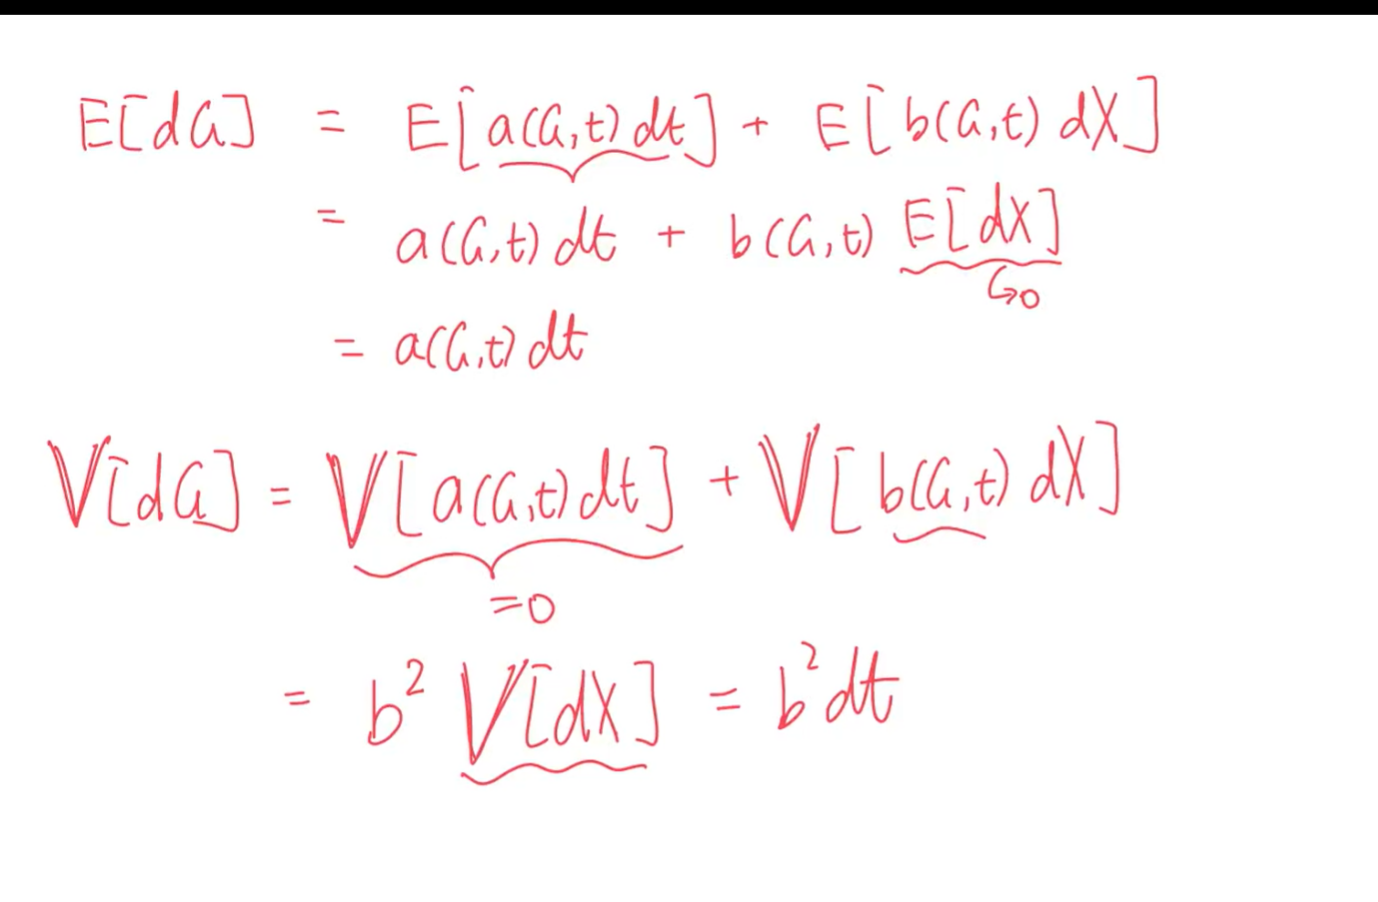 E[dG] = E[a(G,t)dt] + E[b(G,t)dX]
= a(G,t)dt + b(G,t) E[dX]
↪0
= a(G,t)dt
𝕍[dG] = 𝕍[a(G,t)dt] + 𝕍[b(G,t)dX]
=0
= b² 𝕍[dX] = b²dt